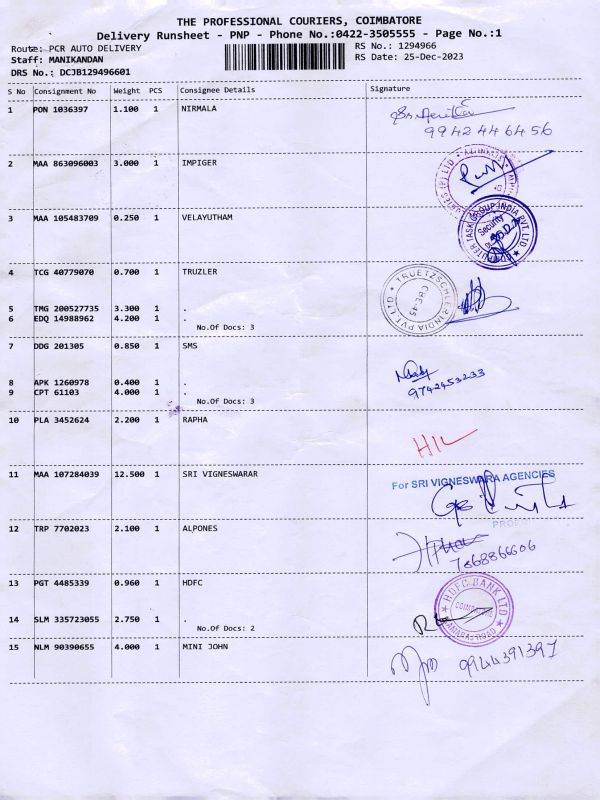 THE PROFESSIONAL COURIERS, COIMBATORE
Delivery Runsheet - PNP - Phone No.:0422-3505555 - Page No.:1
Route: PCR AUTO DELIVERY RS No.: 1294966
Staff: MANIKANDAN RS Date: 25-Dec-2023
DRS No.: DCJB129496601
S No Consignment No Weight PCS Consignee Details Signature
1 PON 1036397 1.100 1 NIRMALA
9942446456
2 MAA 863096003 3.000 1 IMPIGER
3 MAA 105483709 0.250 1 VELAYUTHAM
TASK GROUP INDIA PVT. LTD
Security
4 TCG 40779070 0.700 1 TRUZLER
INDIA PVT LTD
CBE-45
5 TMG 200527735 3.300 1 .
6 EDQ 14988962 4.200 1 .
No.Of Docs: 3
7 DDG 201305 0.850 1 SMS
8 APK 1260978 0.400 1 .
9742453233
9 CPT 61103 4.000 1 .
No.Of Docs: 3
10 PLA 3452624 2.200 1 RAPHA
11 MAA 107284039 12.500 1 SRI VIGNESWARAR
For SRI VIGNESWARA AGENCIES
12 TRP 7702023 2.100 1 ALPONES
13 PGT 4485339 0.960 1 HDFC
HDFC BANK LTD
14 SLM 335723055 2.750 1 .
No.Of Docs: 2
15 NLM 90390655 4.000 1 MINI JOHN
9944391397